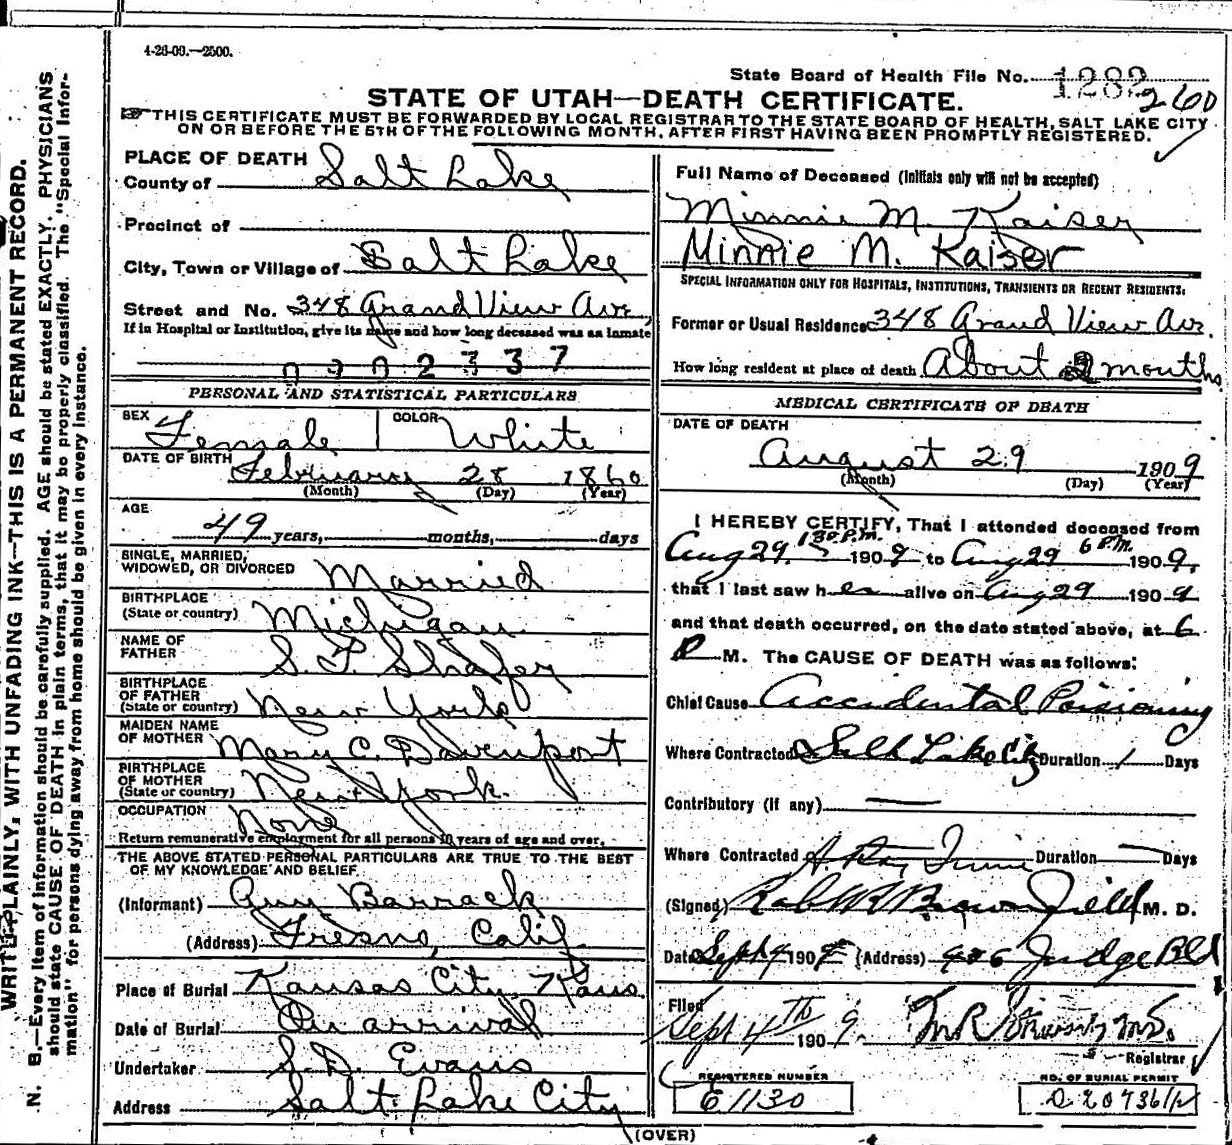 4-26-09.—2500.
State Board of Health File No. 1282 260
STATE OF UTAH—DEATH CERTIFICATE.
THIS CERTIFICATE MUST BE FORWARDED BY LOCAL REGISTRAR TO THE STATE BOARD OF HEALTH, SALT LAKE CITY
ON OR BEFORE THE 5TH OF THE FOLLOWING MONTH, AFTER FIRST HAVING BEEN PROMPTLY REGISTERED.
WRITE PLAINLY, WITH UNFADING INK—THIS IS A PERMANENT RECORD.
N. B.—Every item of information should be carefully supplied. AGE should be stated EXACTLY. PHYSICIANS
should state CAUSE OF DEATH in plain terms, that it may be properly classified. The "Special Infor-
mation" for persons dying away from home should be given in every instance.
PLACE OF DEATH
County of Salt Lake
Precinct of
City, Town or Village of Salt Lake
Street and No. 348 Grand View Ave,
If in Hospital or Institution, give its name and how long deceased was an inmate
0902337
PERSONAL AND STATISTICAL PARTICULARS
SEX Female COLOR White
DATE OF BIRTH February 28 1860
(Month) (Day) (Year)
AGE
49 years, months, days
SINGLE, MARRIED,
WIDOWED, OR DIVORCED Married
BIRTHPLACE
(State or country) Michigan
NAME OF
FATHER S. T. Shafer
BIRTHPLACE
OF FATHER
(State or country) New York
MAIDEN NAME
OF MOTHER Mary C. Davenport
BIRTHPLACE
OF MOTHER
(State or country) New York.
OCCUPATION None
Return remunerative employment for all persons 10 years of age and over.
THE ABOVE STATED PERSONAL PARTICULARS ARE TRUE TO THE BEST
OF MY KNOWLEDGE AND BELIEF
(Informant) Guy Barrack
(Address) Fresno, Calif
Place of Burial Kansas City, Kans.
Date of Burial On arrival
Undertaker S. D. Evans
Address Salt Lake City
Full Name of Deceased (Initials only will not be accepted)
Minnie M. Kaiser
Minnie M. Kaiser
SPECIAL INFORMATION ONLY FOR HOSPITALS, INSTITUTIONS, TRANSIENTS OR RECENT RESIDENTS:
Former or Usual Residence 348 Grand View Ave.
How long resident at place of death About 2 months
MEDICAL CERTIFICATE OF DEATH
DATE OF DEATH
August 29 1909
(Month) (Day) (Year)
I HEREBY CERTIFY, That I attended deceased from
Aug 29. 1 30 P.M. 1909 to Aug 29 6 P.M. 1909,
that I last saw her alive on Aug 29 1909
and that death occurred, on the date stated above, at 6
P M. The CAUSE OF DEATH was as follows:
Chief Cause Accidental Poisioning
Where Contracted Salt Lake City Duration 1 Days
Contributory (if any)
Where Contracted Duration Days
(Signed) Brownfield M. D.
Date Sept 4 1909 (Address) 406 Judge Bld
Filed
Sept 4th 1909.
Registrar
REGISTERED NUMBER
E1130
NO. OF BURIAL PERMIT
(OVER)